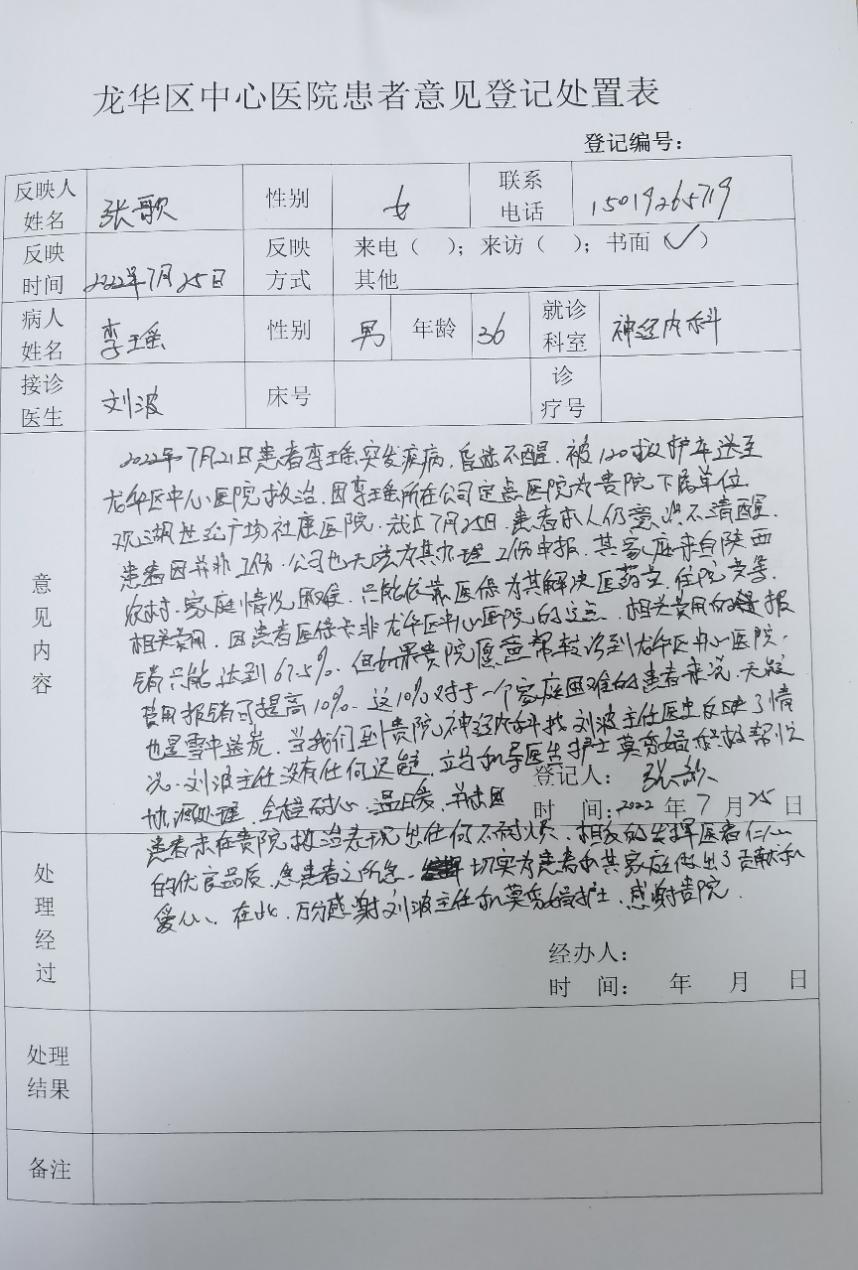 龙华区中心医院患者意见登记处置表
登记编号：
反映人姓名 张歌 性别 女 联系电话 15019265719
反映时间 2022年7月25日 反映方式 来电（ ）；来访（ ）；书面（✓）
其他
病人姓名 李瑶 性别 男 年龄 36 就诊科室 神经内科
接诊医生 刘波 床号 诊疗号
意见内容
2022年7月21日患者李瑶突发疾病，昏迷不醒．被120救护车送至
龙华区中心医院救治．因李瑶所在公司定点医院为贵院下属单位
观湖世纪广场社康医院．截止7月25日．患者本人仍意识不清醒．
患者因并非工伤．公司也无法为其办理工伤申报．其家庭来自陕西
农村．家庭情况困难．只能依靠医保为其解决医药费，住院费等
相关费用．因患者医保卡非龙华区中心医院的定点．相关费用的报
销只能达到67.5%．但如果贵院愿意帮转诊到龙华区中心医院．
费用报销可提高10%．这10%对于一个家庭困难的患者来说．无疑
也是雪中送炭．当我们到贵院神经内科找刘波主任医生反映了情
况．刘波主任没有任何迟疑．立马和导医台护士莫秀娟积极帮忙
协调处理．全程耐心．温暖．并未因
登记人： 张歌
时 间：2022 年 7 月 25 日
处理经过
患者未在贵院救治表现出任何不耐烦．相反的发挥医者仁心
的优良品质．急患者之所急．切实为患者和其家庭做出了贡献和
爱心．在此．万分感谢刘波主任和莫秀娟护士．感谢贵院．
经办人：
时 间： 年 月 日
处理结果
备注